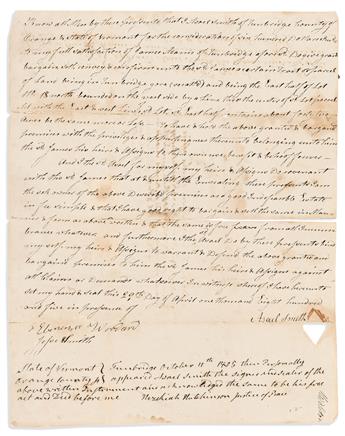 Know all Men by these presents that I Asael Smith of Tunbridge County of
Orange & State of Vermont for the consideration of six hundred Dollars
to my full satisfaction of James Adams of Tunbridge aforesd Do give grant
bargain sell convey & confirm unto the sd James a certain tract or parcel
of Land being in Tunbridge and being the East half of Lot
No 18 north bounded on the west side by a line
the East & west Lines of Lot, Sd East half contains about forty five
Acres be the same more or less To have & hold the above granted & bargained
premises with the priviledges & appurtenances thereunto belonging unto him
the sd James his heirs & assigns to their own use benefit & behoof forever
And I the sd Asael for myself my heirs & Assigns Do covenant
with the sd James that at & until the Ensealing these presents I am
the sole owner of the above Devised premises as a good indefeasible Estate
in fee simple & that I have good right to bargain & sell the same in Man-
ner & form as above written & that the same is free from all Incum-
brance whatever and furthermore I the sd Asael Do by these presents bind
my self my heirs & Assigns to warrant & Defend the above granted and
bargained premises to him the sd James his heirs & assigns against
all Claims or Demands whatsoever In witness whereof I have hereunto
set my hand & Seal this 29th Day of April one thousand Eight hundred
and five in presence of
Asael Smith
Ebenezer Woodard
Jesse Smith
State of Vermont Tunbridge October 11th 1805 then Personally
Orange County appeared Asael Smith the signer and sealer of the
above written Instrument and acknowledged the same to be his free
act and Deed before me Hezekiah Hutchinson Justice of Peace